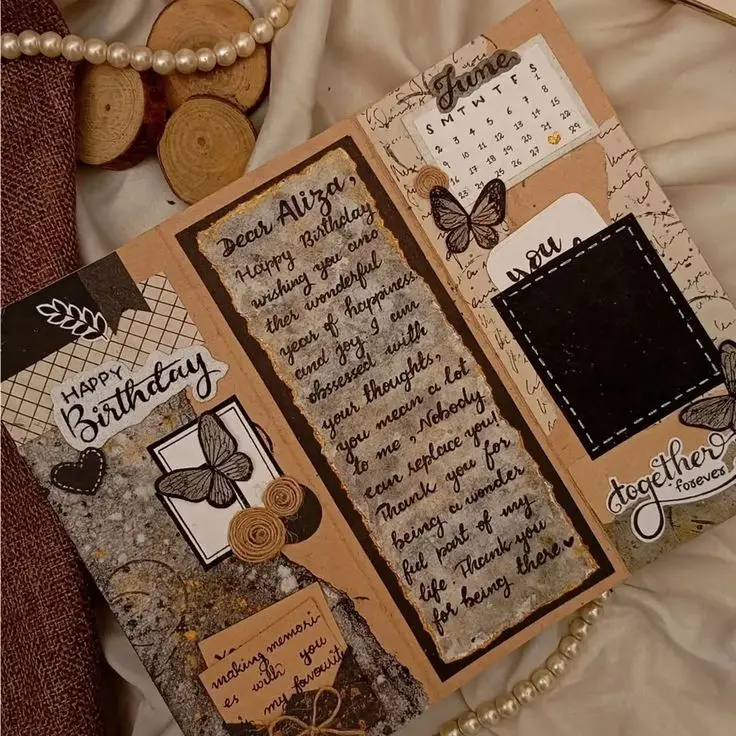 HAPPY
Birthday
making memori-
es with you
my favourit
Dear Aliza,
Happy Birthday
wishing you ano
ther wonderful
year of happiness
and joy. I am
obssessed with
your thoughts,
you mean a lot
to me, Nobody
can replace you!
Thank you for
being a wonder
ful part of my
life. Thank you
for being there.
June
S M T W T F S
1
2 3 4 5 6 7 8
9 10 11 12 13 14 15
16 17 18 19 20 21 22
24 25 26 27 28 29
you
together
forever